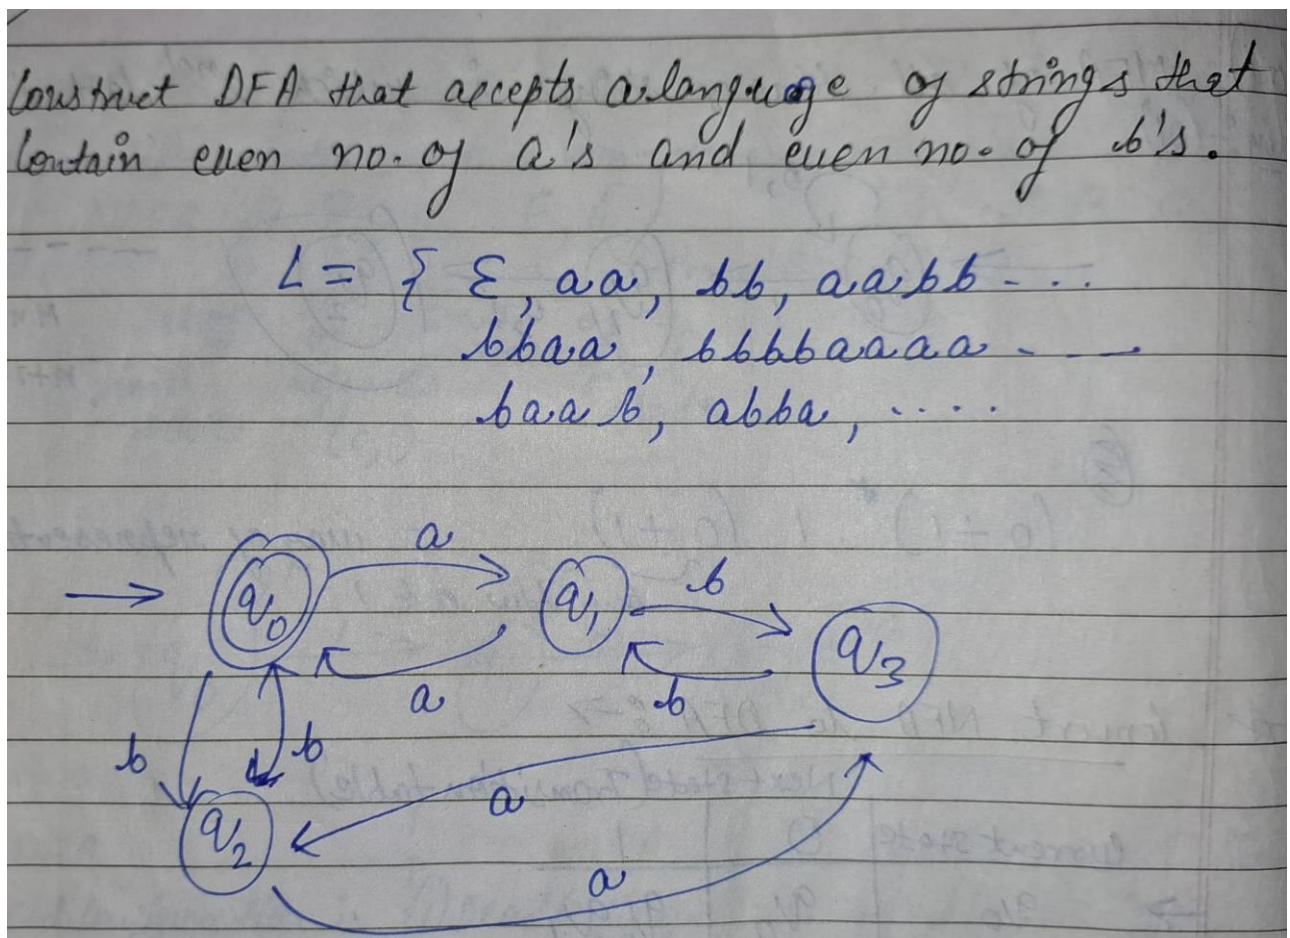 Construct DFA that accepts a language of strings that
Contain even no. of a's and even no. of b's.
L = { ε, aa, bb, aabb - ...
bbaa, bbbbaaaa - —
baab, abba, ....
a
q0 q1 b
q3
a b
b b
a
q2
a